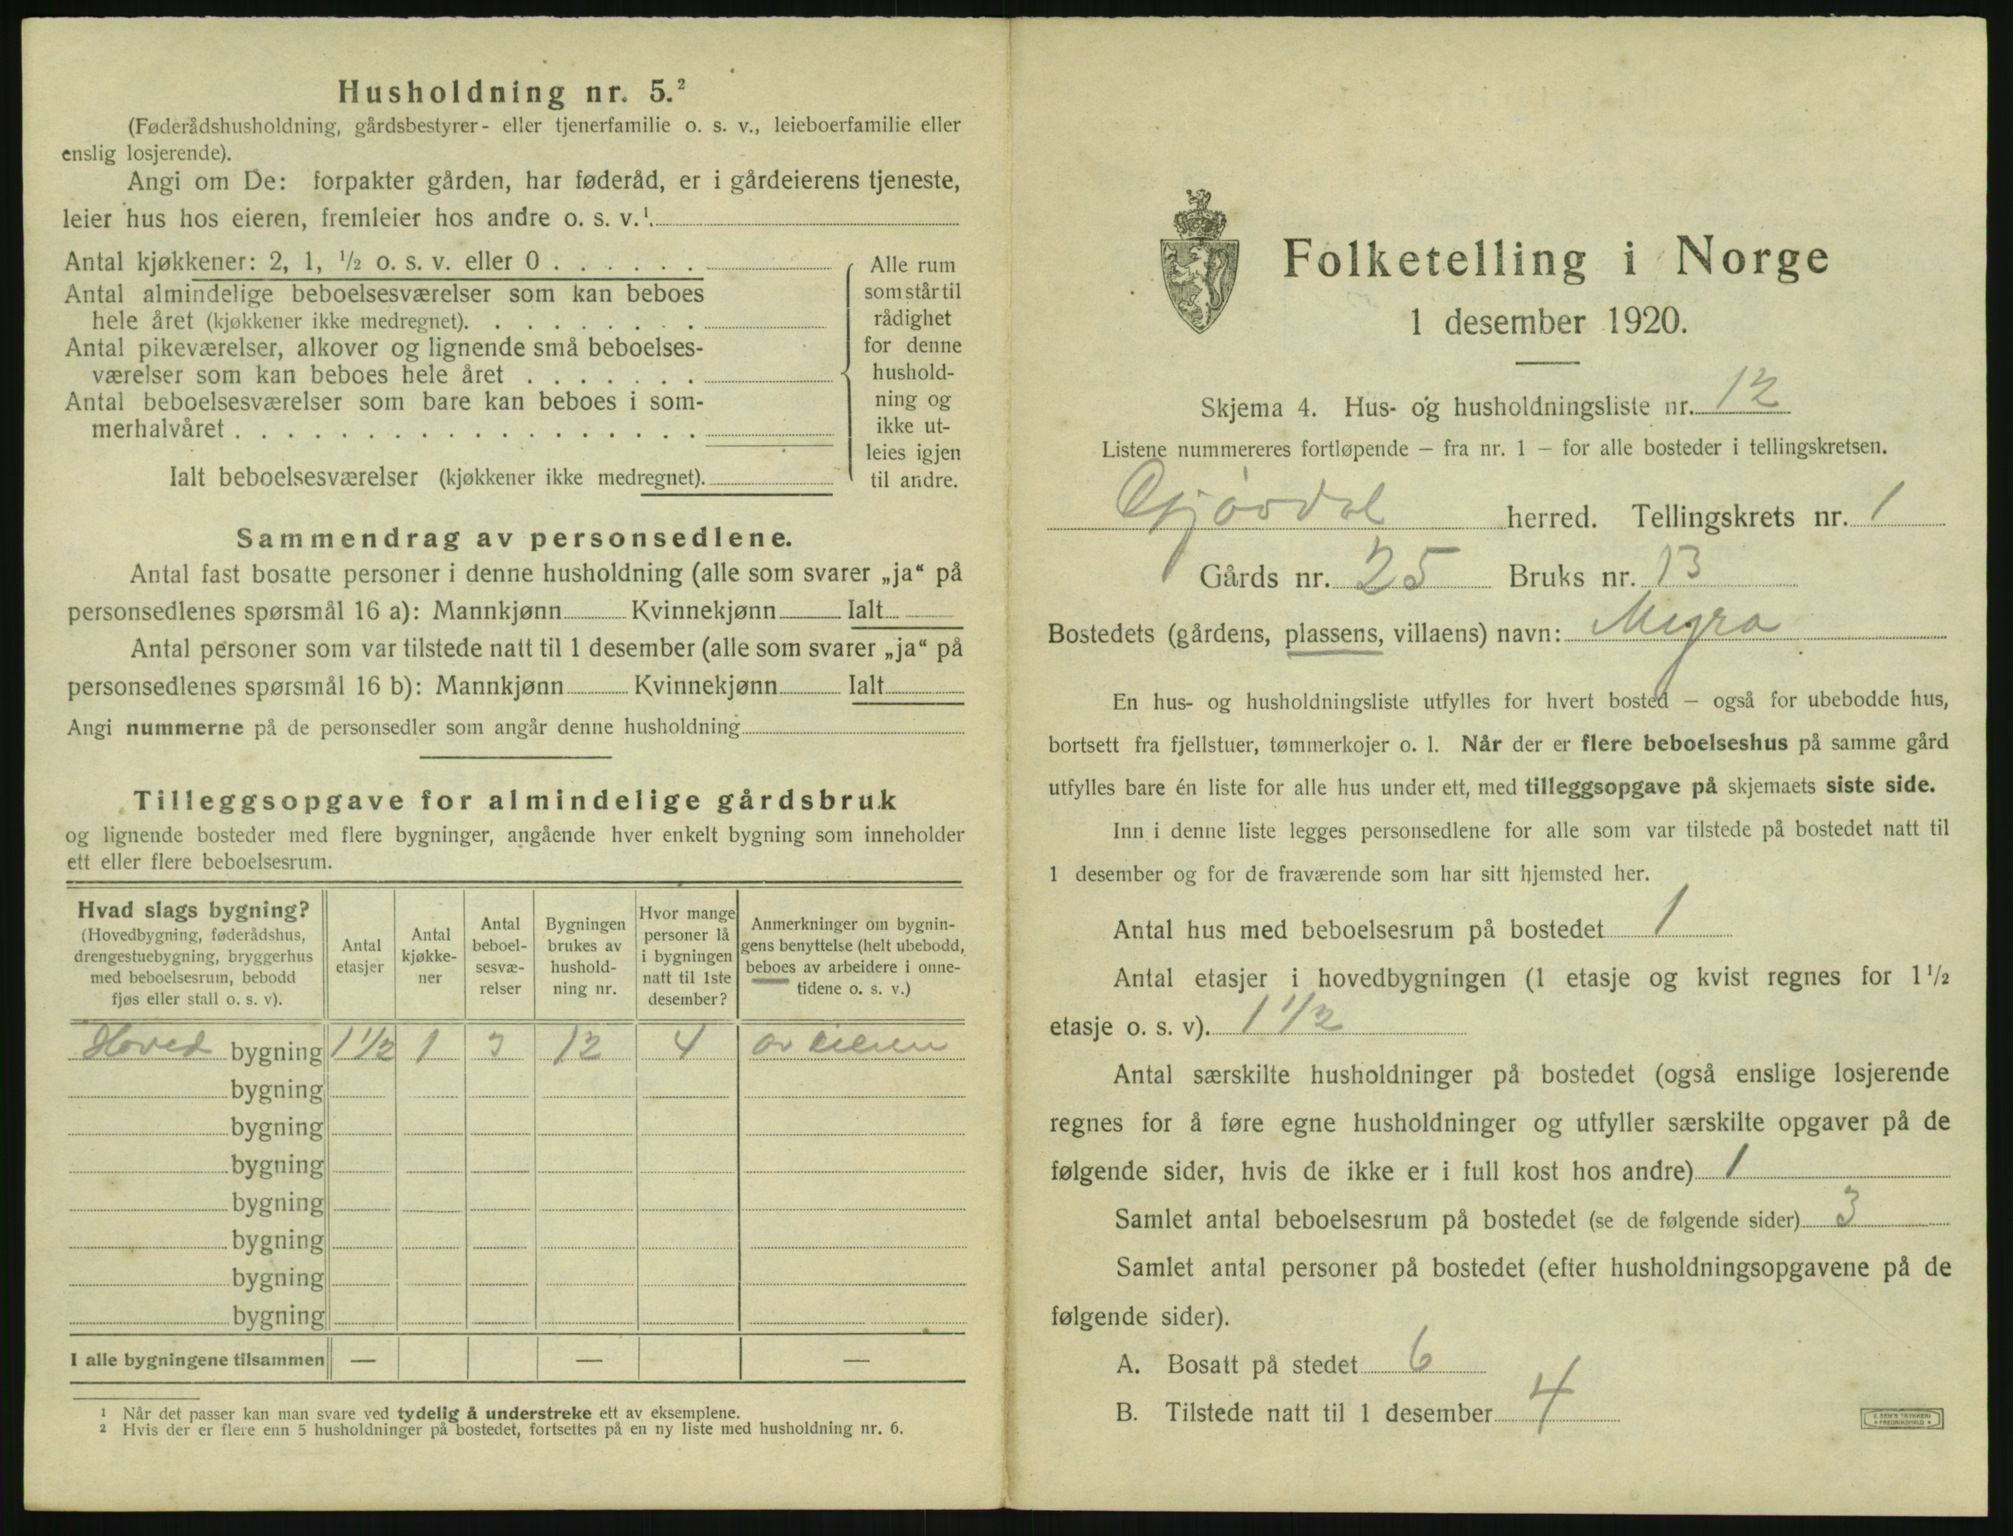 Husholdning nr. 5.²
(Føderådshusholdning, gårdsbestyrer- eller tjenerfamilie o. s. v., leieboerfamilie eller
enslig losjerende).
Angi om De: forpakter gården, har føderåd, er i gårdeierens tjeneste,
leier hus hos eieren, fremleier hos andre o. s. v.¹
Antal kjøkkener: 2, 1, ½ o. s. v. eller 0 . . . . . .
Antal almindelige beboelsesværelser som kan beboes
hele året (kjøkkener ikke medregnet). . . . . . . . .
Antal pikeværelser, alkover og lignende små beboelses-
værelser som kan beboes hele året . . . . . . .
Antal beboelsesværelser som bare kan beboes i som-
merhalvåret . . . . . . . . . . . . . . . . . .
Ialt beboelsesværelser (kjøkkener ikke medregnet).
Alle rum
som står til
rådighet
for denne
hushold-
ning og
ikke ut-
leies igjen
til andre.
Sammendrag av personsedlene.
Antal fast bosatte personer i denne husholdning (alle som svarer „ja“ på
personsedlenes spørsmål 16 a): Mannkjønn Kvinnekjønn Ialt
Antal personer som var tilstede natt til 1 desember (alle som svarer „ja“ på
personsedlenes spørsmål 16 b): Mannkjønn Kvinnekjønn Ialt
Angi nummerne på de personsedler som angår denne husholdning
Tilleggsopgave for almindelige gårdsbruk
og lignende bosteder med flere bygninger, angående hver enkelt bygning som inneholder
ett eller flere beboelsesrum.
Hvad slags bygning?
(Hovedbygning, føderådshus,
drengestuebygning, bryggerhus
med beboelsesrum, bebodd
fjøs eller stall o. s. v).
Antal
etasjer
Antal
kjøkke-
ner
Antal
beboel-
sesvæ-
relser
Bygningen
brukes av
hushold-
ning nr.
Hvor mange
personer lå
i bygningen
natt til 1ste
desember?
Anmerkninger om bygnin-
gens benyttelse (helt ubebodd,
beboes av arbeidere i onne-
tidene o. s. v.)
Hoved bygning 1 1/2 1 3 12 4 av eieren
bygning
bygning
bygning
bygning
bygning
bygning
bygning
I alle bygningene tilsammen — — —
¹ Når det passer kan man svare ved tydelig å understreke ett av eksemplene.
² Hvis der er flere enn 5 husholdninger på bostedet, fortsettes på en ny liste med husholdning nr. 6.
Folketelling i Norge
1 desember 1920.
Skjema 4. Hus- og husholdningsliste nr. 12
Listene nummereres fortløpende – fra nr. 1 – for alle bosteder i tellingskretsen.
Gjøvdal herred. Tellingskrets nr. 1
Gårds nr. 25 Bruks nr. 13
Bostedets (gårdens, plassens, villaens) navn: Myra
En hus- og husholdningsliste utfylles for hvert bosted – også for ubebodde hus,
bortsett fra fjellstuer, tømmerkojer o. l. Når der er flere beboelseshus på samme gård
utfylles bare én liste for alle hus under ett, med tilleggsopgave på skjemaets siste side.
Inn i denne liste legges personsedlene for alle som var tilstede på bostedet natt til
1 desember og for de fraværende som har sitt hjemsted her.
Antal hus med beboelsesrum på bostedet 1
Antal etasjer i hovedbygningen (1 etasje og kvist regnes for 1 ½
etasje o. s. v). 1 1/2
Antal særskilte husholdninger på bostedet (også enslige losjerende
regnes for å føre egne husholdninger og utfyller særskilte opgaver på de
følgende sider, hvis de ikke er i full kost hos andre) 1
Samlet antal beboelsesrum på bostedet (se de følgende sider) 3
Samlet antal personer på bostedet (efter husholdningsopgavene på de
følgende sider).
A. Bosatt på stedet 6
B. Tilstede natt til 1 desember 4